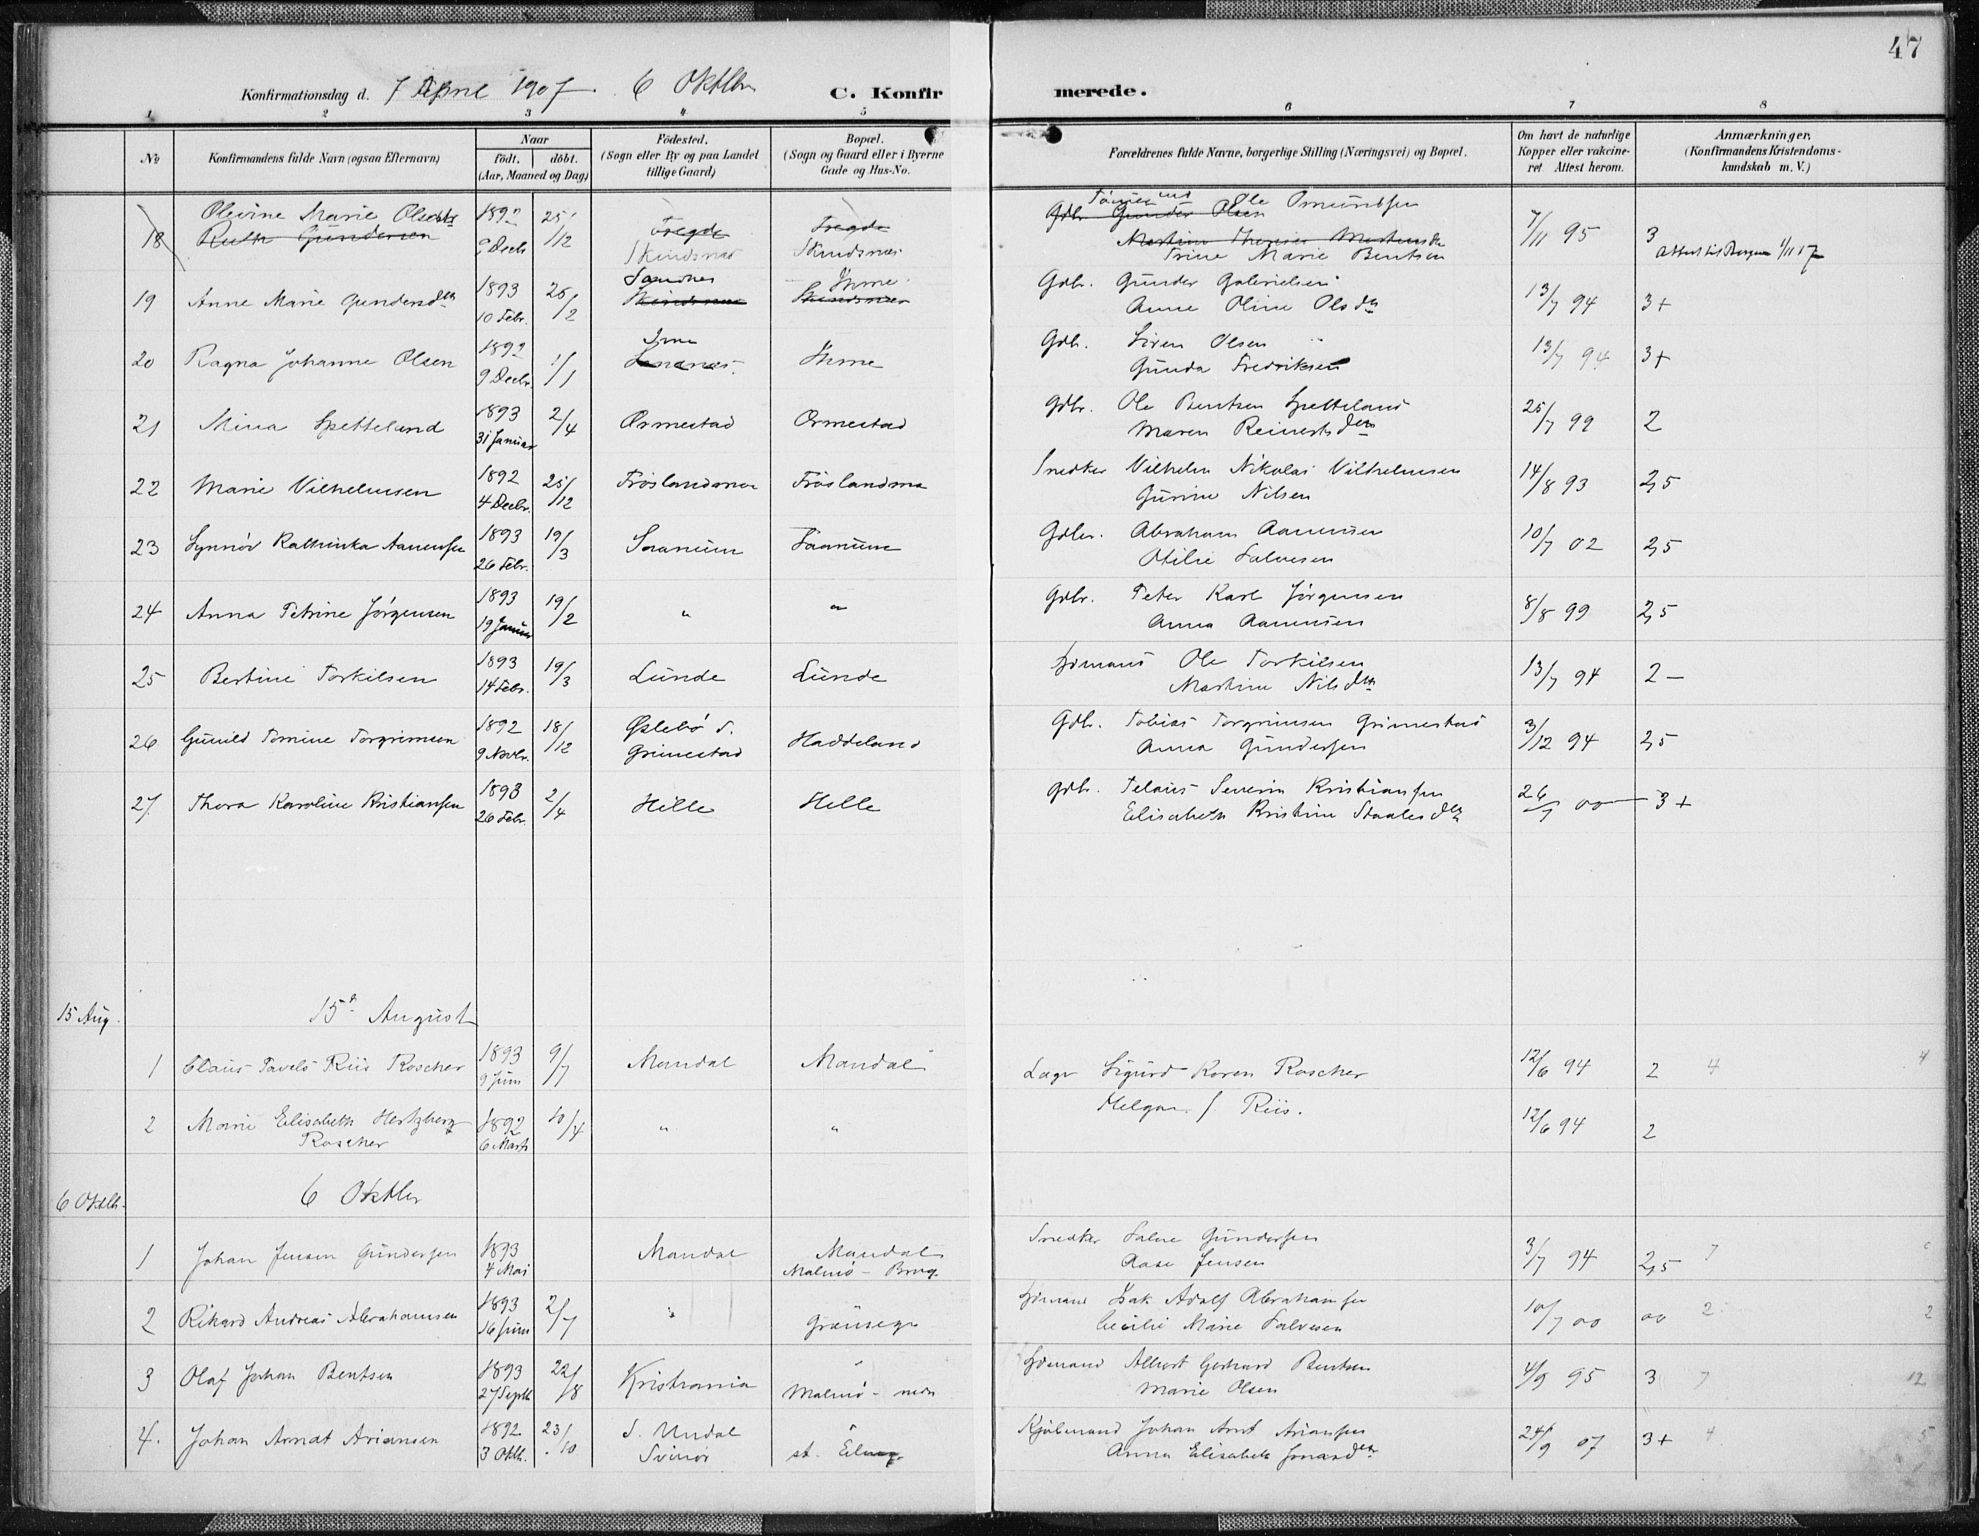 47
Konfirmationsdag d. 7 April 1907. 6 Oktbr C. Konfirmerede.
1 2 3 4 5 6 7 8
No
Konfirmandens fulde Navn (ogsaa Efternavn)
Naar
födt. döbt.
(Aar, Maaned og Dag)
Födested.
(Sogn eller By og paa Landet
tillige Gaard)
Bopæl.
(Sogn og Gaard eller i Byerne
Gade og Hus-No.
Forældrenes fulde Navne, borgerlige Stilling (Næringsvei) og Bopæl.
Om havt de naturlige
Kopper eller vakcine-
ret Attest herom.
Anmærkninger,
(Konfirmandens Kristendoms-
kundskab m. V.)
Olevine Marie 1892 25/12 Fregde Fregde Ole Omundsen
18 Ruth Gundersen Gdbr. Gunder Olsen 7/11 95 3
Decbr Skindsnes Skindsnes Trine Marie Bentsen Attest til Bergen
19 Anne Marie Gundersdtr 1893 26/2 Gdbr. Gunder Gabrielsen 13/7 94 3+
10 Febr. Anne Oline Olsdtr
20 Ragna Johanne Olsen 1892 1/1 Ihme Gdbr. Sören Olsen 13/7 94 3+
9 Decbr. Gunda Fredriksen
21 Mina Spetteland 1893 2/4 Ormestad Ormestad Gdbr. Ole Bentsen Spetteland 25/7 99 2
31 Januar Maren Reinertsdtr
22 Marie Vilhelmsen 1892 25/12 Fröslandsmoen Fröslandsmo Snedker Vilhelm Nikolai Vilhelmsen 14/8 93 2,5
4 Decbr. Gurine Nilsen
23 Synnöv Kathinka Aanensen 1893 19/3 Saanum Saanum Gdbr. Abraham Aanensen 10/7 02 2,5
26 Febr. Otilie Salvesen
24 Anna Petrine Jörgensen 1893 19/2 " " Gdbr. Peter Karl Jörgensen 8/8 99 2,5
19 Januar Anna Aanensen
25 Bertine Torkilsen 1893 19/3 Lunde Lunde Sömand Ole Torkilsen 13/7 94 2 –
14 Febr. Martine Nilsdtr
26 Gunild Tomine Torgrimsen 1892 18/12 Øslebö S. Haddeland Gdbr. Tobias Torgrimsen Grimestad 3/12 94 2,5
9 Novbr. Grimestad Anna Gundersen
27. Thora Karoline Kristiansen 1893 2/4 Hille Hille Gdbr. Severin Kristiansen 26/7 00 3+
26 Febr. Elisabeth Kristine Staalesdtr
15 Aug. 15de August
1 Claus Pavels Riis Roscher 1893 9/7 Mandal Mandal Sigurd Koren Roscher 12/6 94 2 4 4
9 Juni Helga f. Riis.
2 Marie Elisabeth Hertzberg 1892 10/4 " " 12/6 94 2
Roscher 6 Marts
6 Oktbr. 6 Oktbr
1 Johan Jensen Gundersen 1893 Mandal Mandal Snedker Salve Gundersen 3/7 94 2,5 7
4 Mai Malmö - Brug. Aase Jensen
2 Rikard Andreas Abrahamsen 1893 2/7 " Grænseg. Sömand Isak Adolf Abrahamsen 10/7 00 00 2 2
16 Juni Cecilie Marie Salvesen
3 Olaf Johan Bentsen 1893 22/8 Kristiania " Sömand Albert Gerhard Bentsen 4/9 95 3 7 12
27 Malmö - Marie Olsen
4. Johan Arndt Ariansen 1892 23/10 S. Undal " Kjöbmand Johan Arnt Ariansen 24/9 07 3+ 4 5
3 Oktb. Svinör st. Elveg. Anna Elisabeth